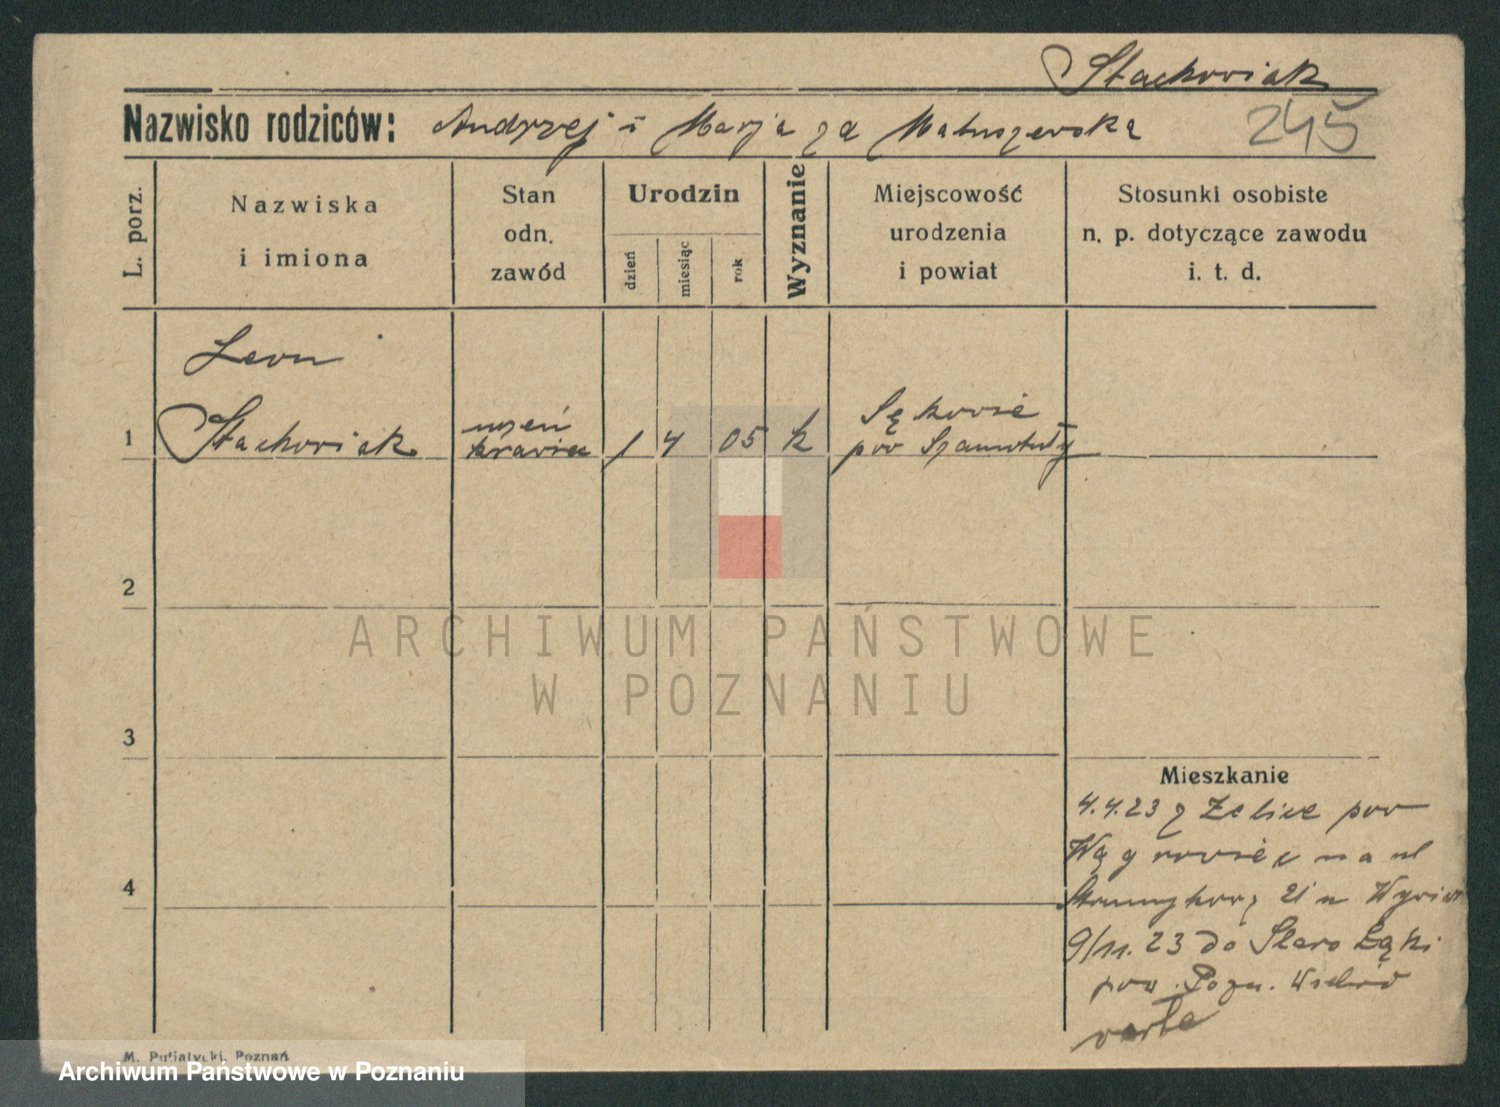 Stachowiak
Nazwisko rodziców: Andrzej i Marja za Matuszewska
245
L. porz.
Nazwiska
i imiona
Stan
odn.
zawód
Urodzin
dzień
miesiąc
rok
Wyznanie
Miejscowość
urodzenia
i powiat
Stosunki osobiste
n. p. dotyczące zawodu
i. t. d.
Leon
1 Stachowiak
uczeń
krawiec
1 4 05 k
Sękowie
pow Szamotuły
2
ARCHIWUM PAŃSTWOWE
W POZNANIU
3
Mieszkanie
4.4.23 z Żelice pow
Wągrowiec na ul
4
21
9/11.23 do Staro Łąki
pow. Pozn.
verte
M. Putiatycki, Poznań
Archiwum Państwowe w Poznaniu